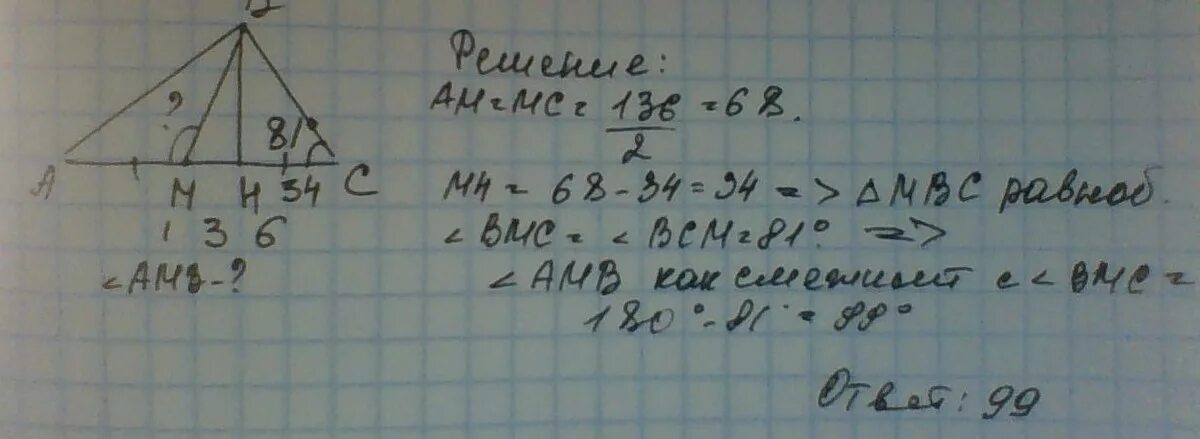 Решение:
AM = MC = 136/2 = 68.
? 81°
A M H 34 C
MH = 68 - 34 = 34 => △MBC равноб.
136
∠BMC = ∠BCM = 81° =>
∠AMB - ?
∠AMB как смежный с ∠BMC =
180° - 81° = 99°
Ответ: 99